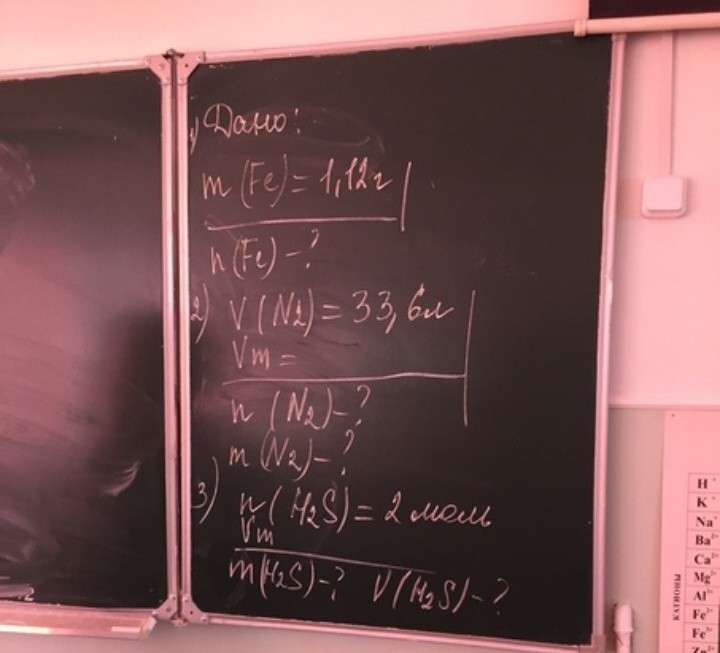 1) Дано:
m (Fe) = 1,12г
n (Fe) - ?
2) V (N2) = 33,6л
Vm =
n (N2) - ?
m (N2) - ?
3) n (H2S) = 2 моль
Vm
m (H2S) - ? V (H2S) - ?
КАТИОНЫ
H⁺
K⁺
Na⁺
Ba²⁺
Ca²⁺
Mg²⁺
Al³⁺
Fe²⁺
Fe³⁺